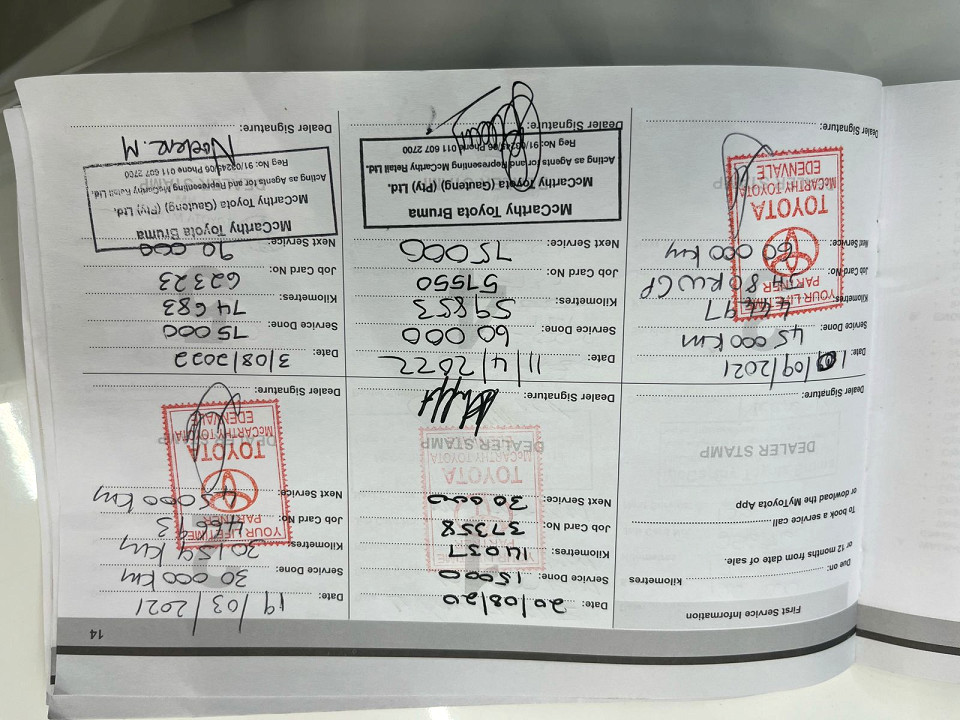 14
First Service Information
Due on: kilometres
or 12 months from date of sale.
To book a service call
or dowload the MyToyota App
DEALER STAMP
Dealer Signature:
Date: 20/08/20
Service Done: 15000
Kilometres: 14037
Job Card No: 37358
Next Service: 30 000
YOUR LIFETIME
PARTNER
TOYOTA
McCARTHY TOYOTA
DEALER STAMP
Dealer Signature:
Date: 19/03/2021
Service Done: 30 000 km
Kilometres: 30154 km
Job Card No:
Next Service: 45000 km
YOUR LIFETIME
PARTNER
TOYOTA
McCARTHY TOYOTA
EDENVALE
Dealer Signature:
Date: /09/2021
Service Done: 45 000 km
Kilometres:
Job Card No:
Next Service: 60 000 km
YOUR LIFETIME
PARTNER
TOYOTA
McCARTHY TOYOTA
EDENVALE
Dealer Signature:
Date: 11/4/2022
Service Done: 60 000
Kilometres: 59853
Job Card No: 57550
Next Service: 75000
McCarthy Toyota Bruma
McCarthy Toyota (Gauteng) (Pty) Ltd.
Acting as Agents for and Representing McCarthy Retail Ltd.
Reg No: 91/03245/06 Phone 011 607 2700
Dealer Signature:
Date: 3/08/2022
Service Done: 75 000
Kilometres: 74683
Job Card No: 62323
Next Service: 90 000
McCarthy Toyota Bruma
McCarthy Toyota (Gauteng) (Pty) Ltd.
Acting as Agents for and Representing McCarthy Retail Ltd.
Reg No: 91/03245/06 Phone 011 607 2700
Dealer Signature: